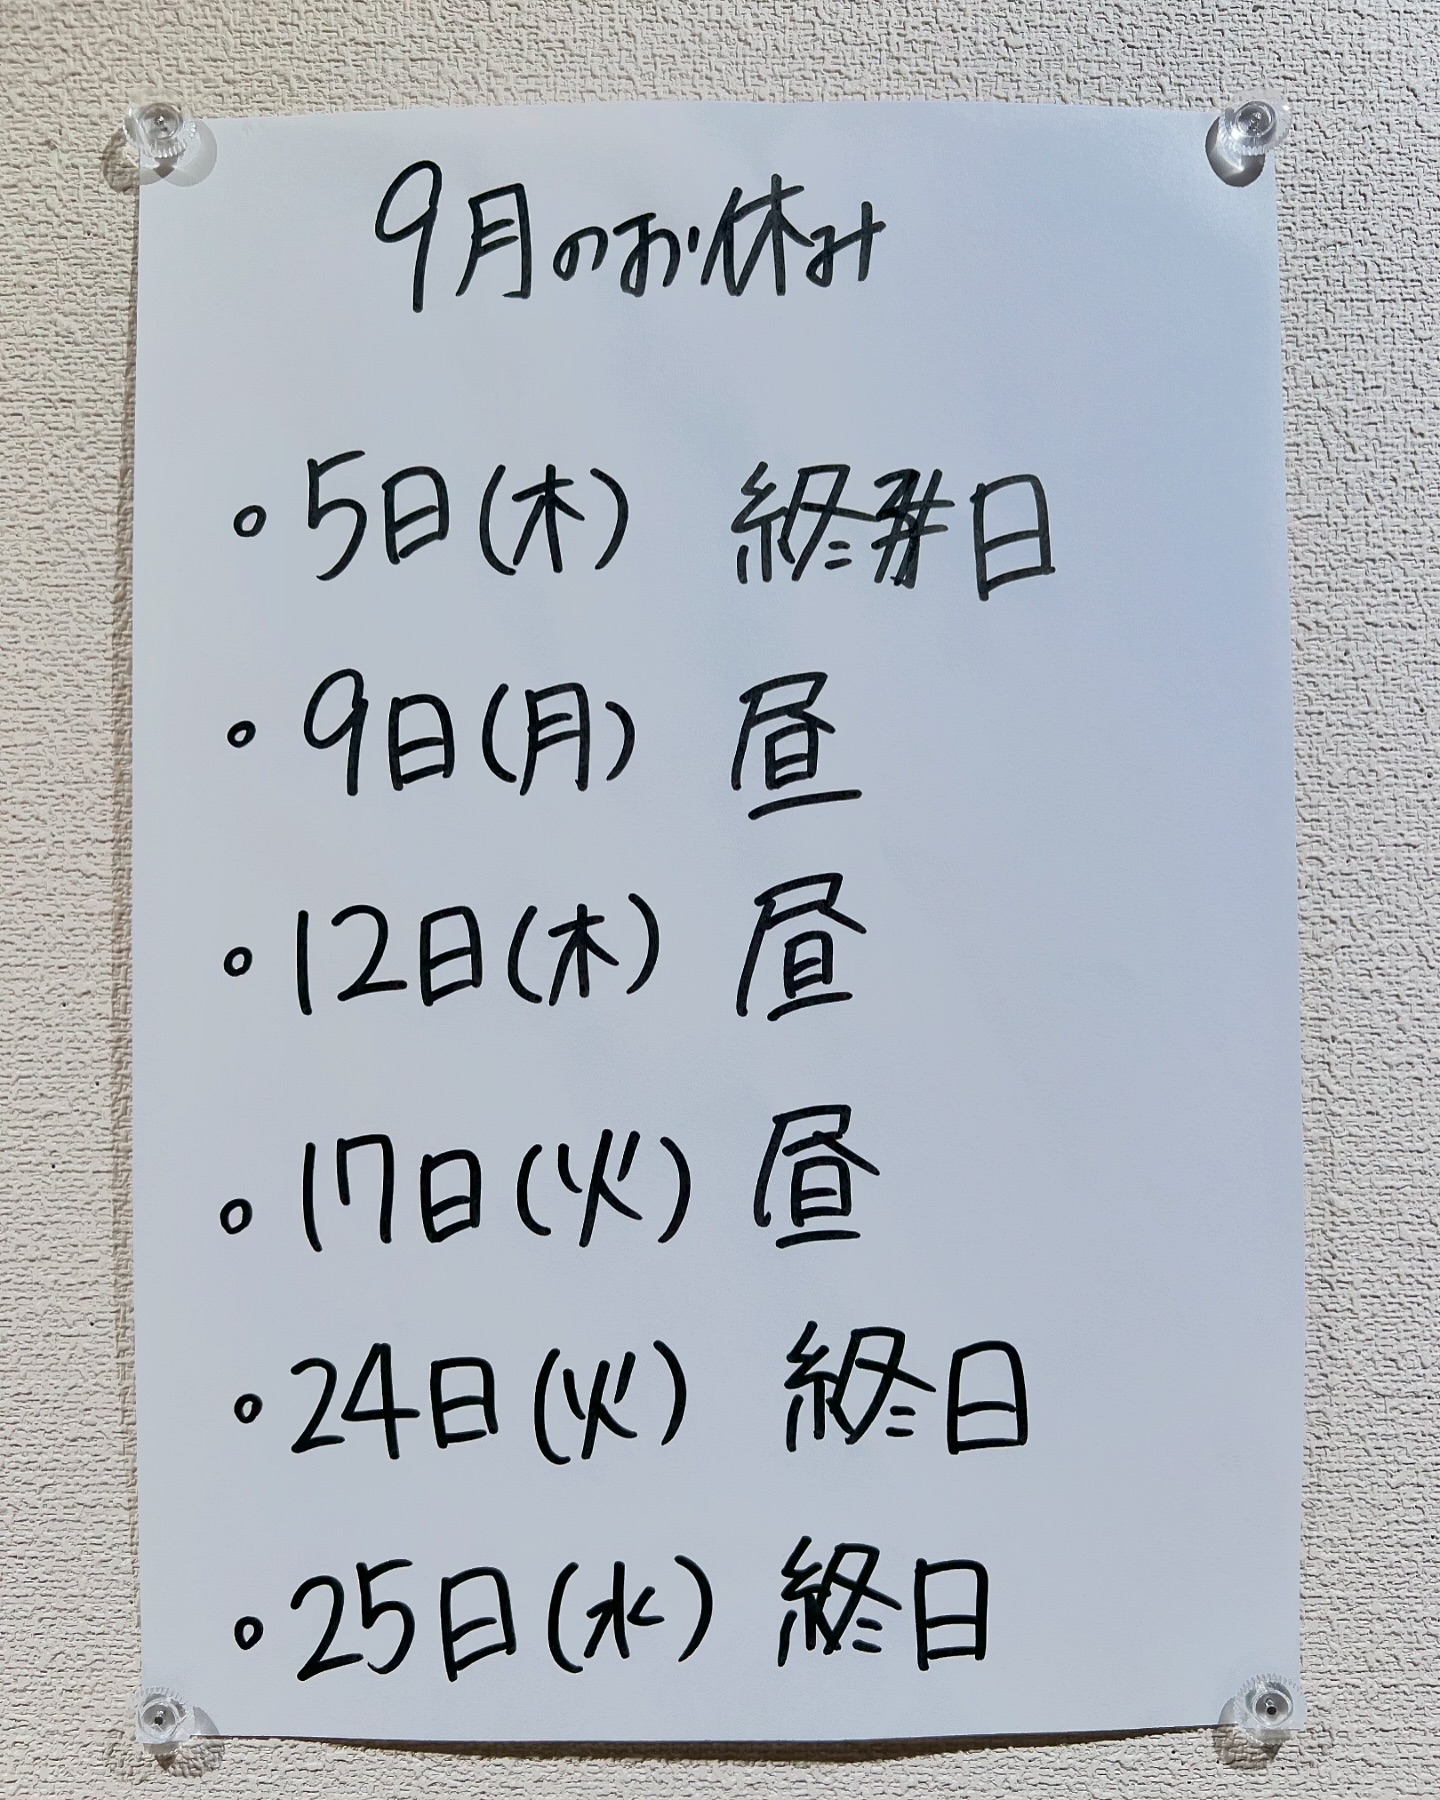 9月のお休み
。5日(木) 終日
。9日(月) 昼
。12日(木) 昼
。17日(火) 昼
。24日(火) 終日
。25日(水) 終日